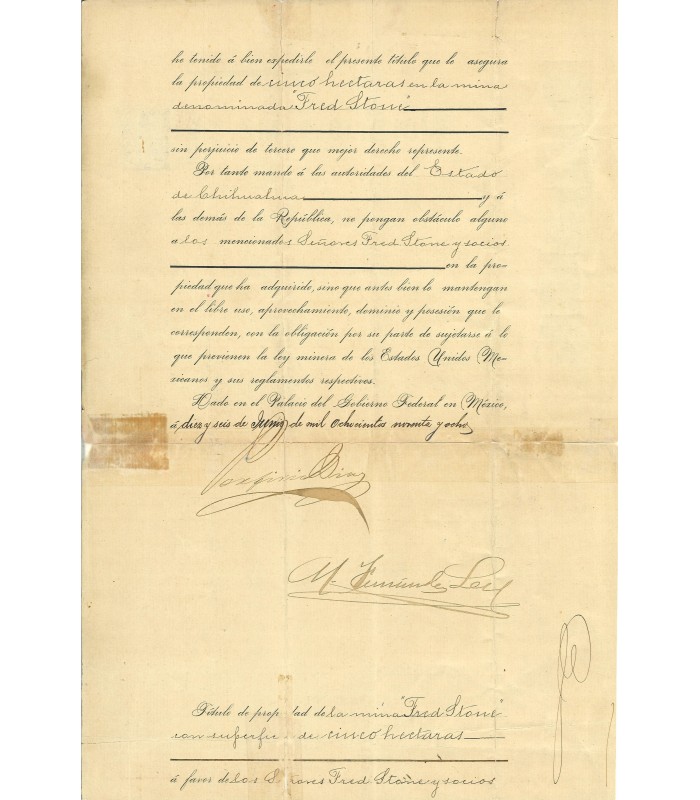 ha tenido á bien expedirle el presente título que le asegura
la propiedad de cinco hectaras en la mina
denominada "Fred Stone"
sin perjuicio de tercero que mejor derecho represente.
Por tanto mando á las autoridades del Estado
de Chihuahua y á
las demás de la República, no pongan obstáculo alguno
a los mencionados Señores Fred Stone y socios
en la pro-
piedad que ha adquirido, sino que antes bien lo mantengan
en el libre uso, aprovechamiento, dominio y posesión que le
corresponden, con la obligación por su parte de sujetarse á lo
que previenen la ley minera de los Estados Unidos Me-
xicanos y sus reglamentos respectivos.
Dado en el Palacio del Gobierno Federal en México,
á diez y seis de Junio de mil ochocientos noventa y ocho
Porfirio Diaz
M. Fernández Leal
Título de prop lad de la mina "Fred Stone"
con superfic de cinco hectaras
á favor de los S ores Fred Stone y socios